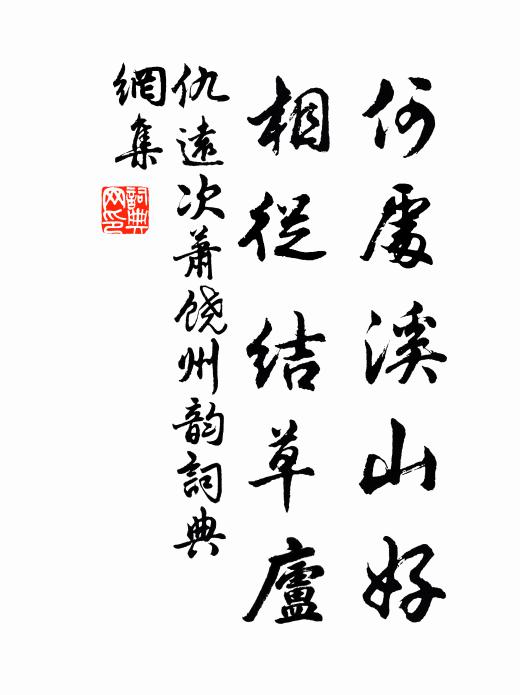 何處溪山好
相從結草廬
仇遠次蕭饶州韵詞典
網集
詞典
网印